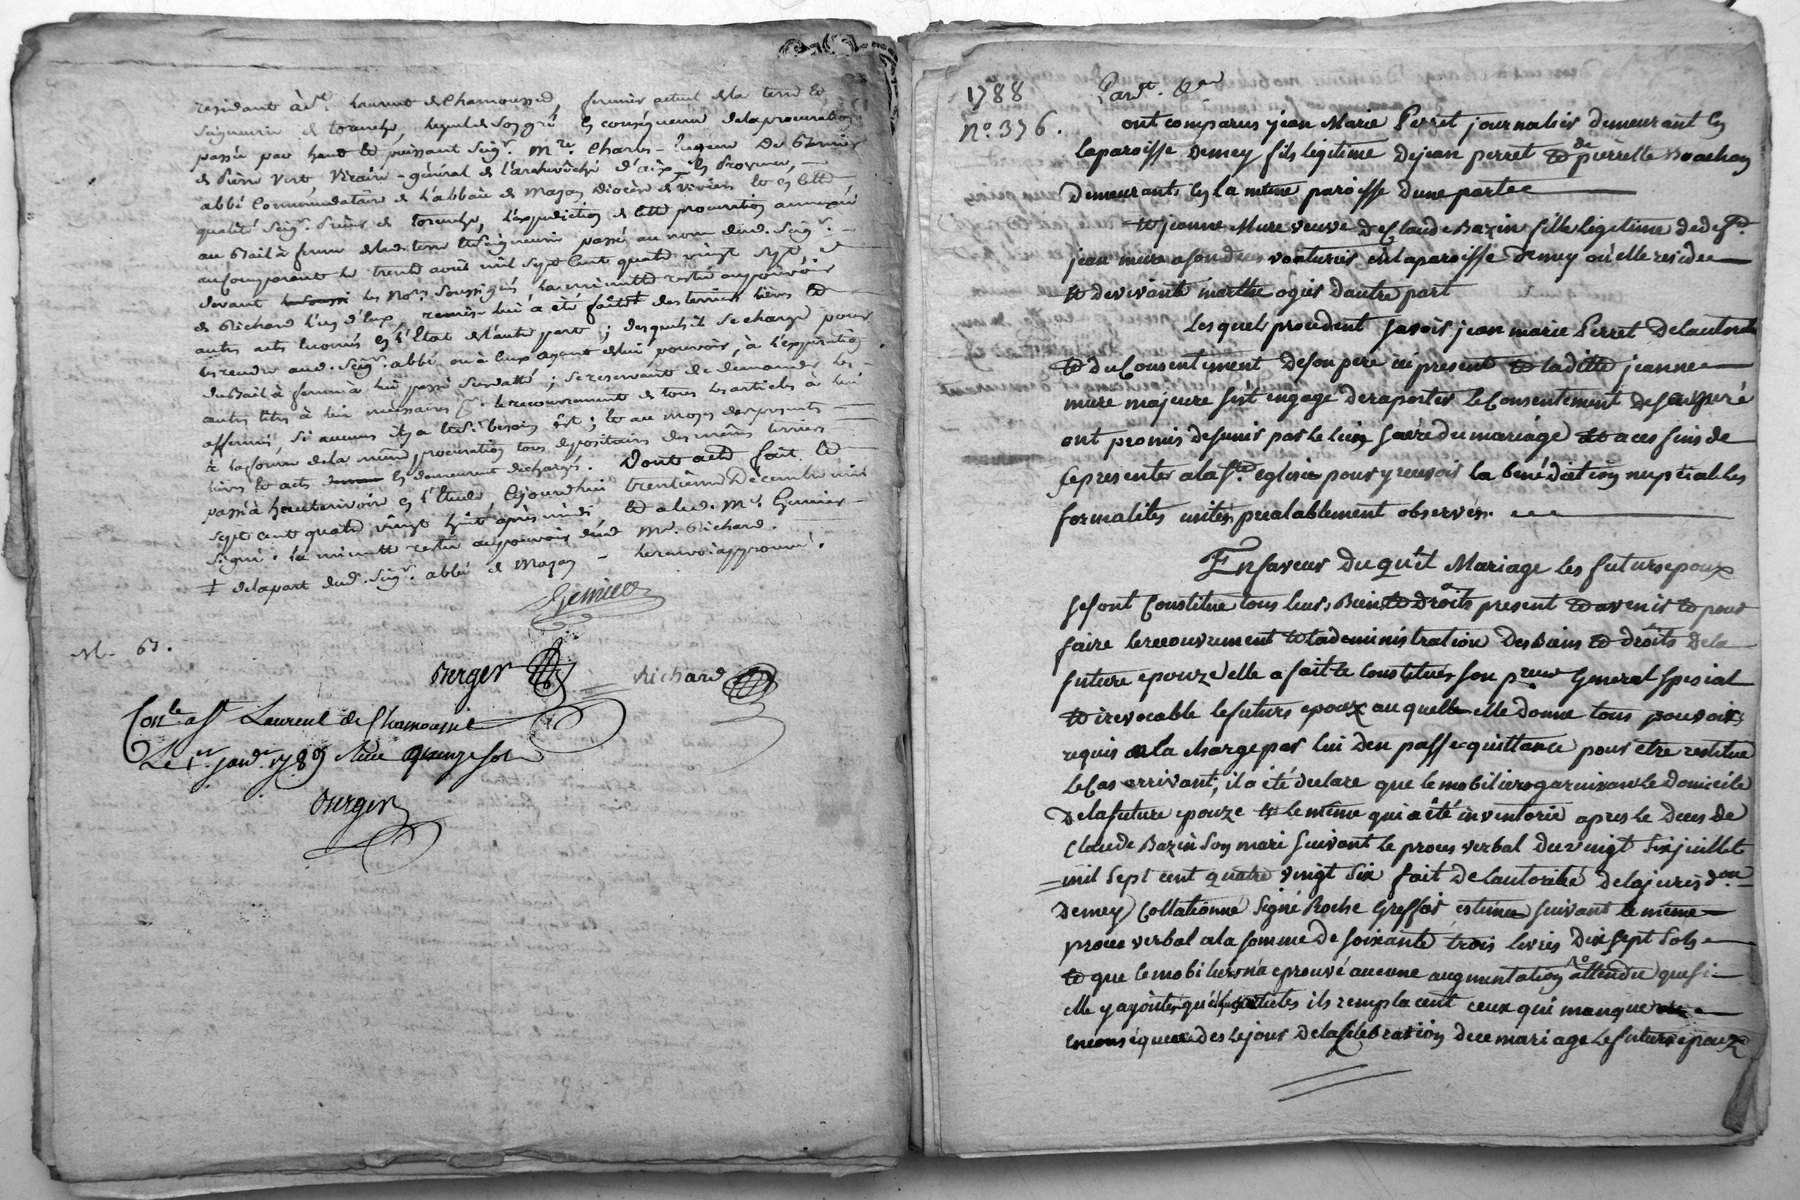 residant à St. Laurent de Chamousset, fermier actuel de la terre et
Seigneurie de torenche, lequel de son gré en conséquence de la procuration
passée par haut et puissant Seigr. Mre. Charles - Eugene De
de Pierre vert Vicaire - général de l'archevêché d'aix en Provence,
abbé Commendataire de l'abbaie de Mazan diocèse de Viviers et en cette
qualité Seigr. Prieur de torenche, l'expedition de cette procuration annexée
au Bail à ferme de lad. terre et Seigneurie passé au nom dud. Seigr.
au Comparant le trente août mil Sept Cent quatre vingt Sept et
devant les Nores. Soussignés la minutte restée au pouvoir
de Richard l'un d'eux, remise lui a été faitte des terriers lieves et
autres acts énoncés en l'État de l'autre part ; desquels il Se charge pour
les rendre aud. Seigr. abbé ou à Ceux ayant de lui pouvoir, à l'expiration
du Bail à ferme à lui passé Susdatté ; Se reservant de demander les
autres titres à lui nécessaires pr. le recouvrement de tous les articles à lui
affermés Si aucuns il y a et Si besoin est ; et au moyen des presents
la forme de la même procuration tous depositaires des mêmes terriers
lieves et acts en demeurent dechargés. Dont acte fait et
passé à hauterivoire en l'étude Cejourdhui trentieme Décembre mil
Sept cent quatre vingt huit après midi et a led. Mr. Genier
Signé. la minutte restée au pouvoir dud. Me. Richard.
‡ de la part dud. Seigr. abbé de Mazan - le renvoi approuvé.
Genier
63.
Durger Richard
Conlé a St Laurent de Chamousset
Le 1er. janvr. 1789 Reçu quinze sols
Durger
1788
No. 376.
Pardt. &a
ont comparus jean Marie Perret journalier demeurant en
la paroisse demey fils legitime de jean perret et de pierrette
Demeurants en la même paroisse d'une parte
et jeanne Mure veuve De Claude Bazin fille legitime de deft.
jean mure a son vivant voiturier en la paroisse demey où elle reside
et de vivante marthe ogier d'autre part
Lesquels procedent Savoir jean marie Perret De lautorité
et du Consentement de son pere ici present et ladite jeanne
mure majeure s'est engagé de raporter le Consentement de sa mere
ont promis de s'unir par le lien Sacré du mariage et a ces fins de
se presenter a la Ste. eglise pour y recevoir la benédiction nuptial les
formalités usitées prealablement observés.
En faveur Du quel Mariage les futurs epoux
se sont Constitué tous leurs Biens et droits present et avenir et pour
faire le recouvrement et l'administration Des Biens et droits De la
future epouze elle a fait et constitué son preur General Special
et irrevocable le futur epoux au quelle elle donne tous pouvoirs
requis a la charge par lui d'en passer quittance pour etre restitué
Le Cas arrivant ; il a été declare que le mobilier garnissant le domicile
De la future epouze et le même qui a été inventorié apres le Deces de
Claude Bazin son mari suivant le proces verbal du vingt Six juillet
mil Sept cent quatre vingt Six fait De lautorité De la jurisdon
Demey Collationné Signé Roche Greffier estimé suivant le même
proces verbal a la somme De soixante trois livres Dix sept sols
et que le mobilier n'a eprouvé aucune augmentation attendu que si
elle y a joutés quelques articles ils remplacent ceux qui manque
en consequence des le jour De la Celebration de ce mariage le futur epoux